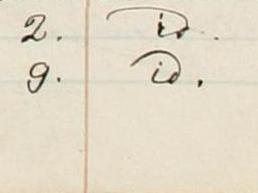 2. id.
9. id.